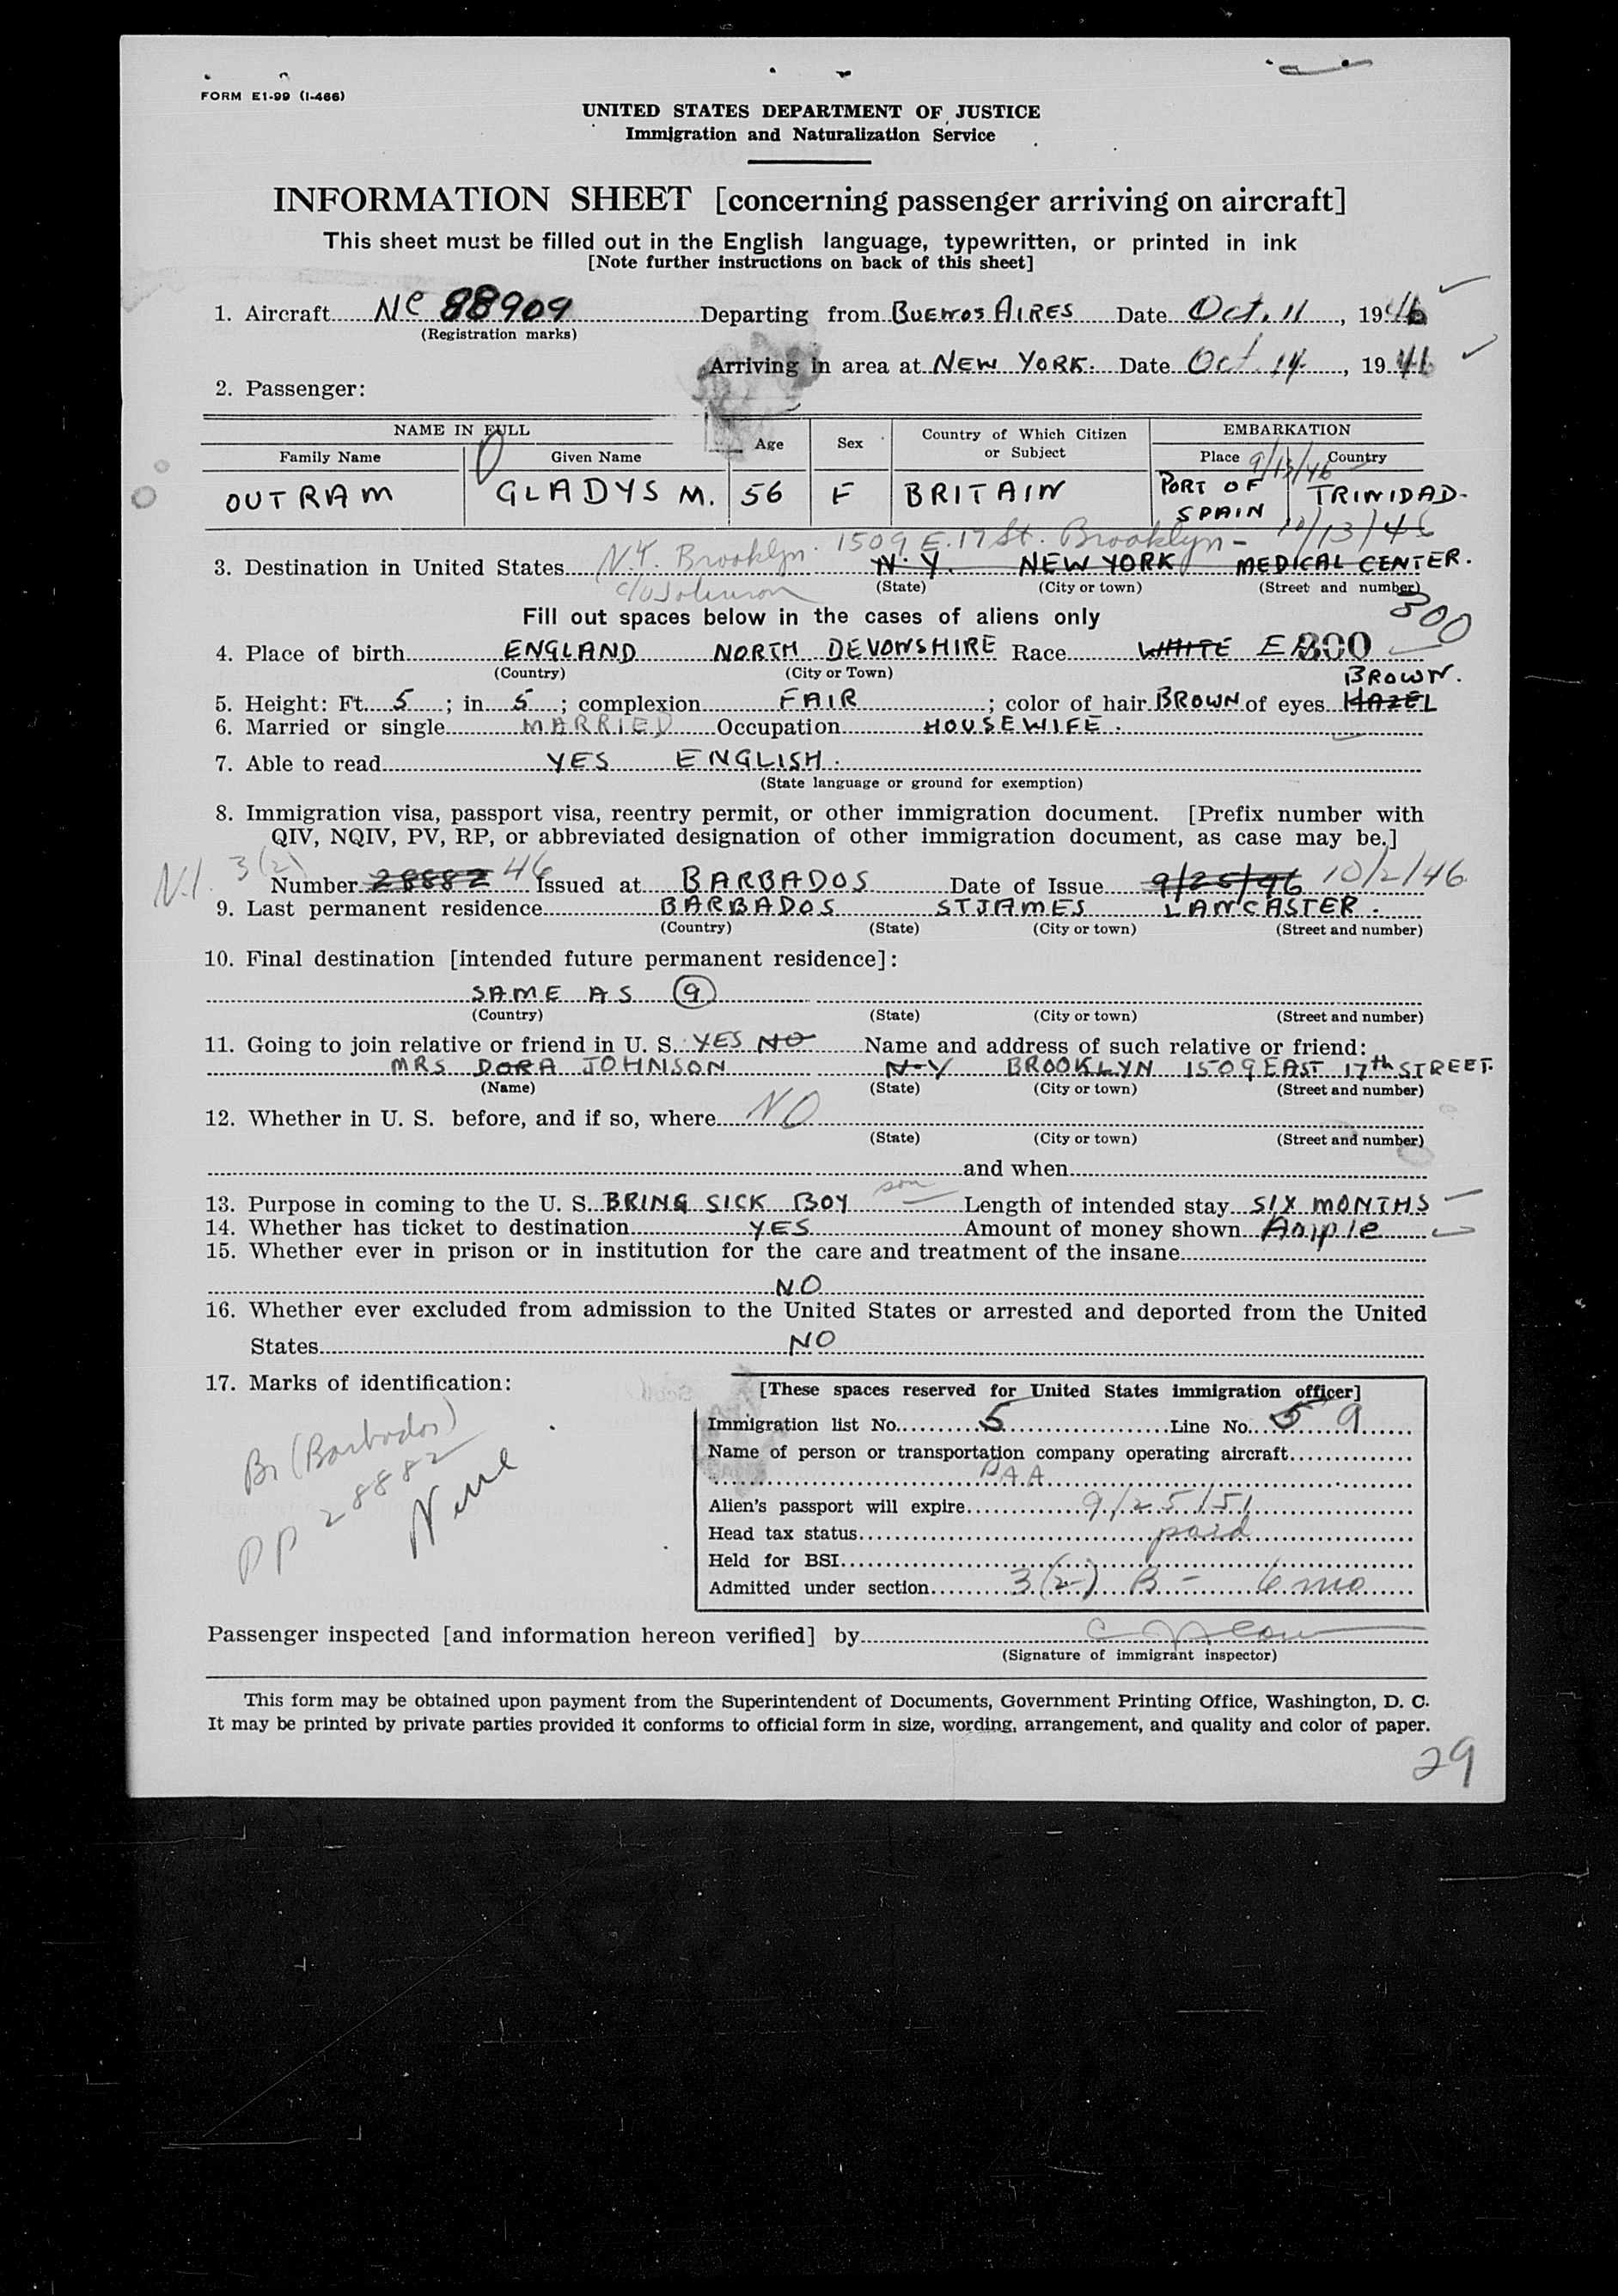 FORM E1-99 (I-466)
UNITED STATES DEPARTMENT OF JUSTICE
Immigration and Naturalization Service
INFORMATION SHEET [concerning passenger arriving on aircraft]
This sheet must be filled out in the English language, typewritten, or printed in ink
[Note further instructions on back of this sheet]
1. Aircraft NC 88909 Departing from BUENOS AIRES Date Oct. 11, 1946
(Registration marks)
Arriving in area at NEW YORK. Date Oct 14, 1946
2. Passenger:
NAME IN FULL Age Sex Country of Which Citizen or Subject EMBARKATION
Family Name Given Name Place Country
9/13/46
OUTRAM GLADYS M. 56 F BRITAIN PORT OF SPAIN TRINIDAD-
10/13/46
N.Y. Brooklyn. 1509 E. 17 St. Brooklyn-
3. Destination in United States N.Y. NEW YORK MEDICAL CENTER.
c/o Johnson (State) (City or town) (Street and number)
300
Fill out spaces below in the cases of aliens only
4. Place of birth ENGLAND NORTH DEVONSHIRE Race WHITE 300
(Country) (City or Town)
BROWN.
5. Height: Ft. 5; in 5; complexion FAIR; color of hair BROWN of eyes HAZEL
6. Married or single MARRIED Occupation HOUSEWIFE.
7. Able to read YES ENGLISH.
(State language or ground for exemption)
8. Immigration visa, passport visa, reentry permit, or other immigration document. [Prefix number with
QIV, NQIV, PV, RP, or abbreviated designation of other immigration document, as case may be.]
3(2)
Number 28882 46 Issued at BARBADOS Date of Issue 9/25/46 10/2/46
9. Last permanent residence BARBADOS ST JAMES LANCASTER.
(Country) (State) (City or town) (Street and number)
10. Final destination [intended future permanent residence]:
SAME AS 9
(Country) (State) (City or town) (Street and number)
11. Going to join relative or friend in U. S. YES NO Name and address of such relative or friend:
MRS DORA JOHNSON N-Y BROOKLYN 1509 EAST 17th STREET.
(Name) (State) (City or town) (Street and number)
12. Whether in U. S. before, and if so, where NO
(State) (City or town) (Street and number)
and when
son
13. Purpose in coming to the U. S. BRING SICK BOY Length of intended stay SIX MONTHS
14. Whether has ticket to destination YES Amount of money shown Ample
15. Whether ever in prison or in institution for the care and treatment of the insane
NO
16. Whether ever excluded from admission to the United States or arrested and deported from the United
States NO
17. Marks of identification:
Br (Barbados)
PP 28882
None
[These spaces reserved for United States immigration officer]
Immigration list No. 5 Line No. 5 9
Name of person or transportation company operating aircraft
PAA
Alien's passport will expire 9/25/51
Head tax status paid
Held for BSI
Admitted under section 3(2) B - 6 mo
Passenger inspected [and information hereon verified] by
(Signature of immigrant inspector)
This form may be obtained upon payment from the Superintendent of Documents, Government Printing Office, Washington, D. C.
It may be printed by private parties provided it conforms to official form in size, wording, arrangement, and quality and color of paper.
29